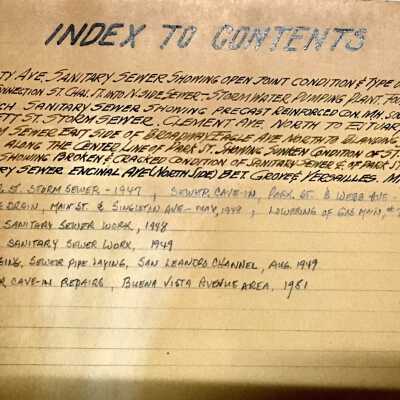 INDEX TO CONTENTS
TY AVE. SANITARY SEWER SHOWING OPEN JOINT CONDITION & TYPE O
NNECTION ST. CHAS. ST. INTO N. SIDE SEWER - STORM WATER PUMPING PLANT. FOO
CH SANITARY SEWER SHOWING PRECAST REINFORCED CON. MH. SOU
ETT ST. STORM SEWER, CLEMENT AVE. NORTH TO ESTUARY
M SEWER EAST SIDE OF BROADWAY EAGLE AVE NORTH TO BLANDING
ALONG THE CENTER LINE OF PARK ST. SHOWING SUNKEN CONDITION OF ST.
SHOWING BROKEN & CRACKED CONDITION OF SANITARY SEWER E. OF PARK ST
RY SEWER ENCINAL AVE (NORTH SIDE) BET. GROVE & VERSAILLES. M
ST. STORM SEWER - 1947, SEWER CAVE-IN, PARK ST. & WEBB AVE -
E DRAIN, MAIN ST. & SINGLETON AVE - MAY, 1948, LOWERING OF GAS MAIN,
SANITARY SEWER WORK, 1948
SANITARY SEWER WORK, 1949
GING, SEWER PIPE LAYING, SAN LEANDRO CHANNEL, AUG. 1949
R CAVE-IN REPAIRS, BUENA VISTA AVENUE AREA, 1981